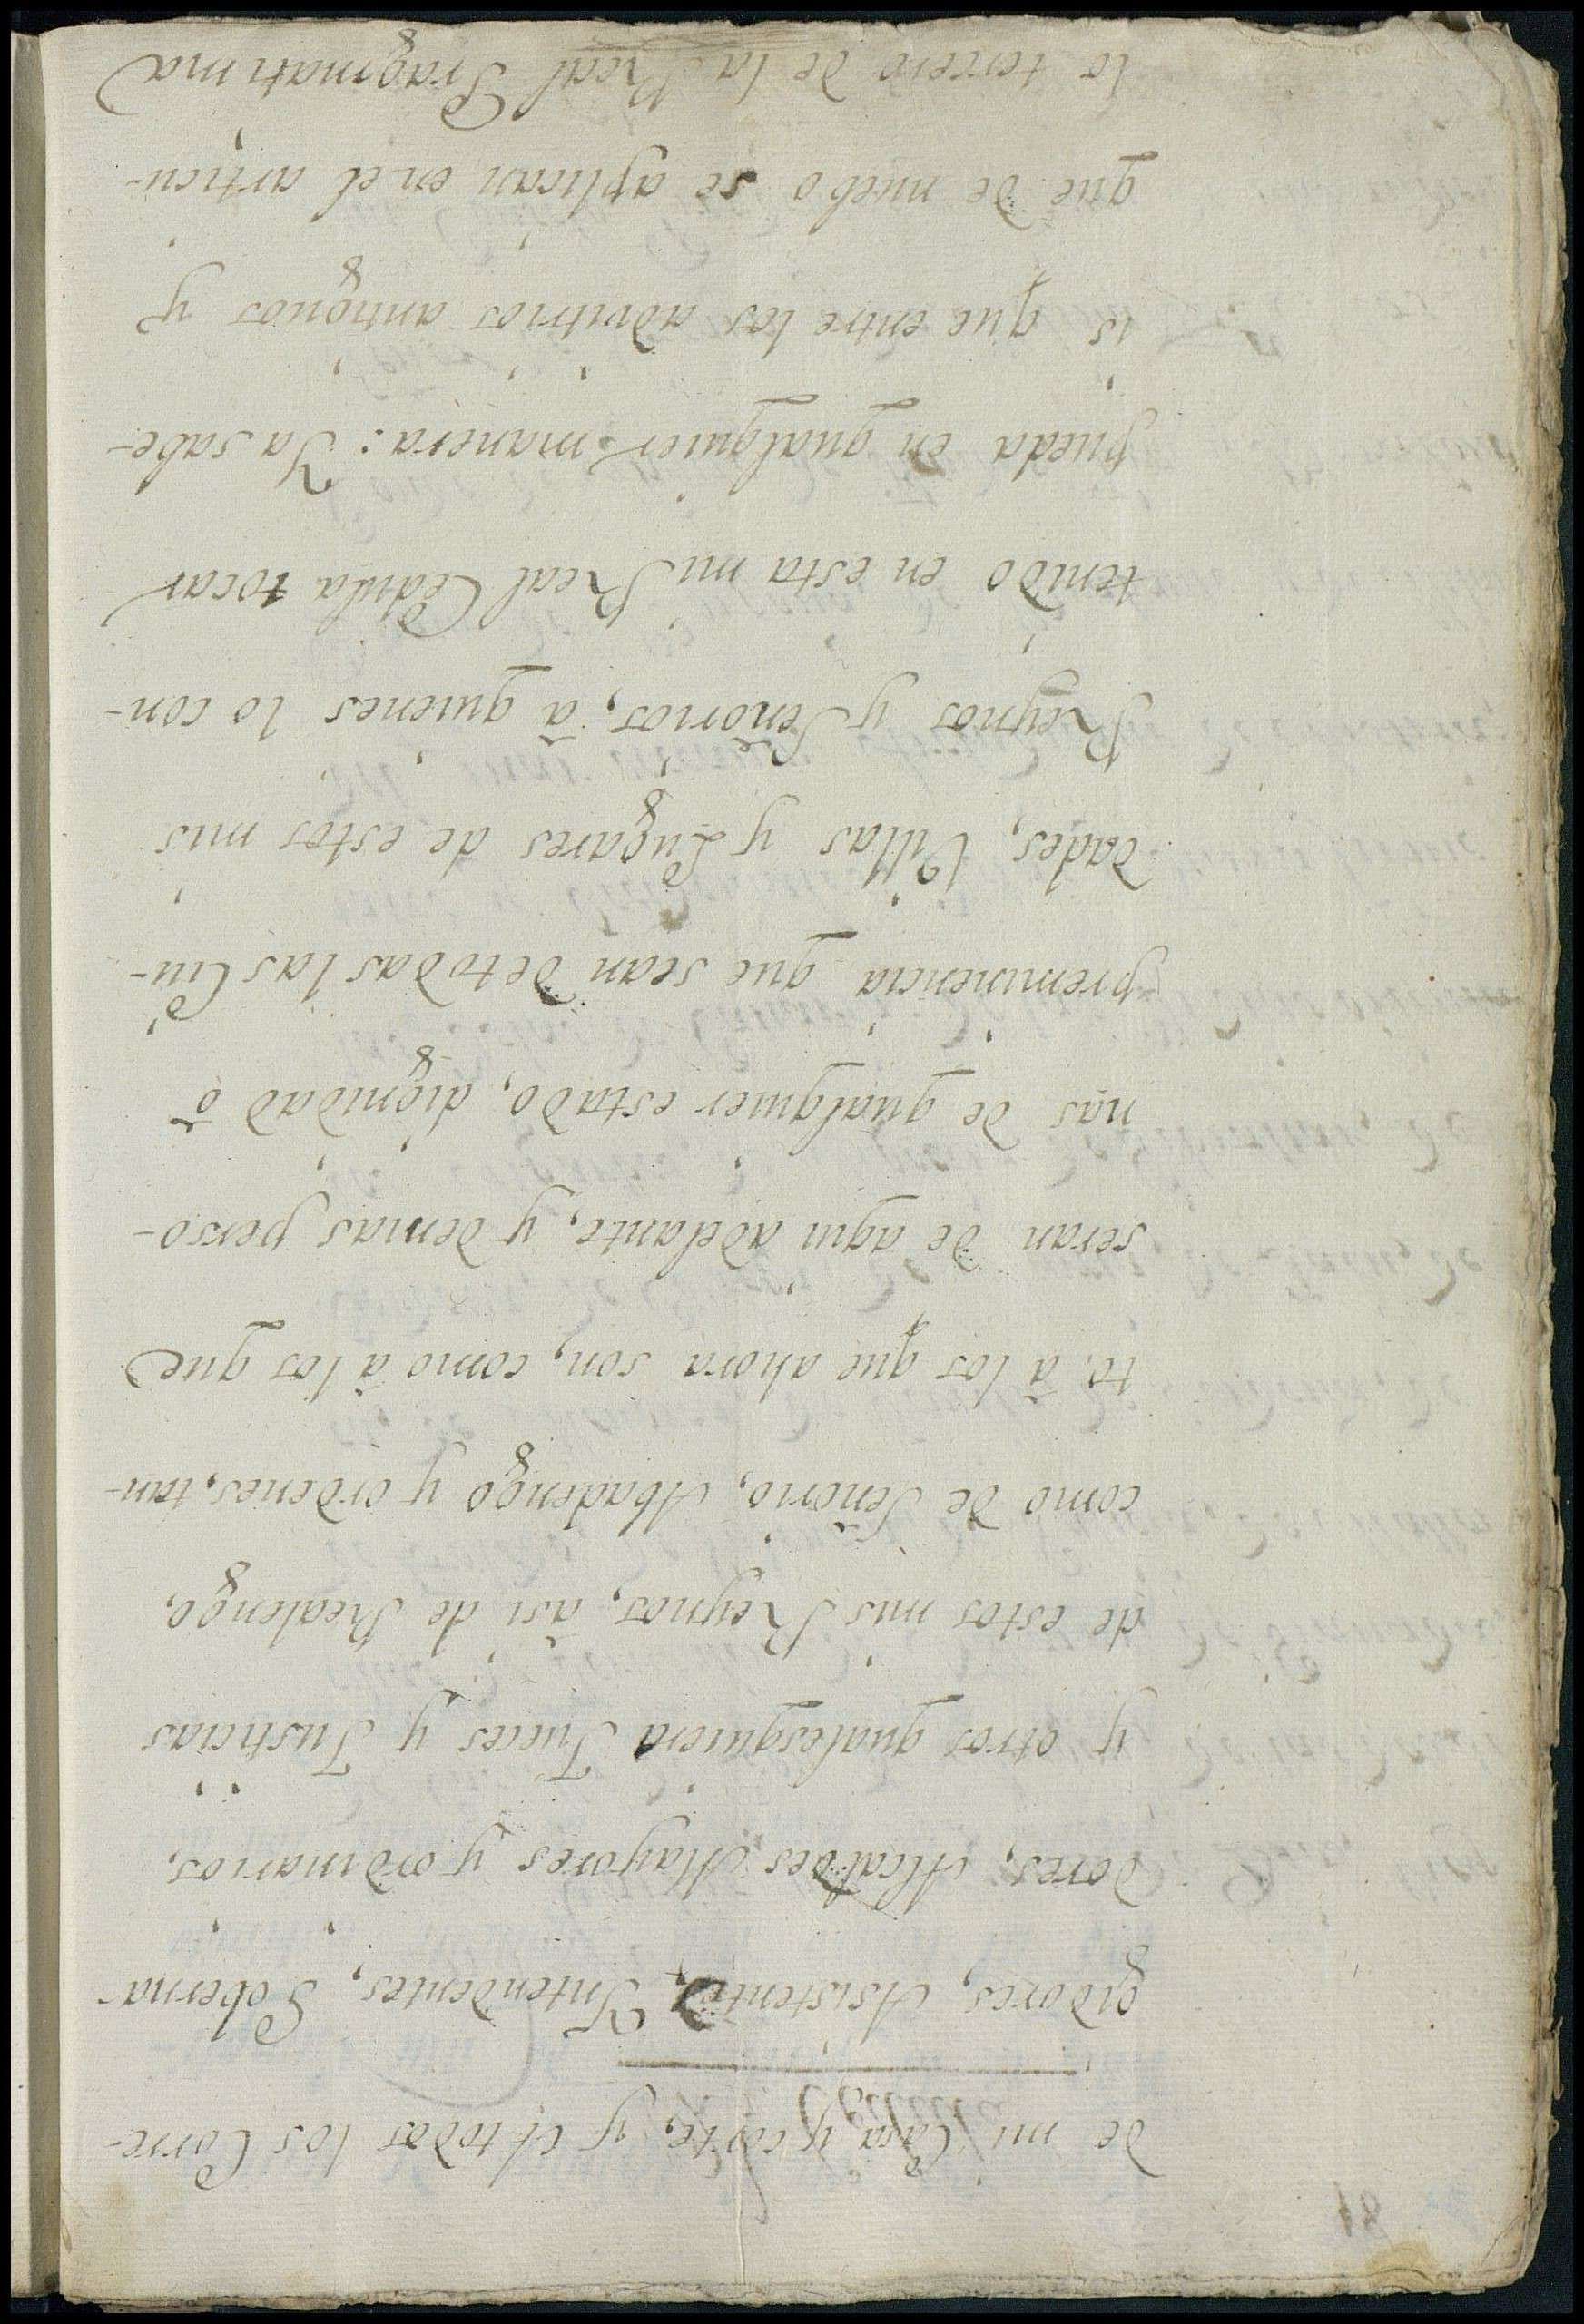 de mi Casa y corte, y A todos los Corre-
gidores, Asistente, Intendentes, Goberna-
dores, Alcaldes Mayores y ordinarios,
y otros qualesquiera Jueces y Justicias
de estos mis Reynos, asi de Realengo,
como de Señorio, Abadengo y ordenes, tan-
to à los que ahora son, como à los que
seran de aqui adelante, y demas perso-
nas de qualquier estado, dignidad ò
preminencia que sean de todas las Ciu-
dades, Villas y Lugares de estos mis
Reynos y Señorios, à quienes lo con-
tenido en esta mi Real Cedula tocar
pueda en qualquier manera: Ya sabe-
is que entre los advitrios antiguos y
que de nuebo se aplican en el articu-
lo tercero de la Real Pragmatima